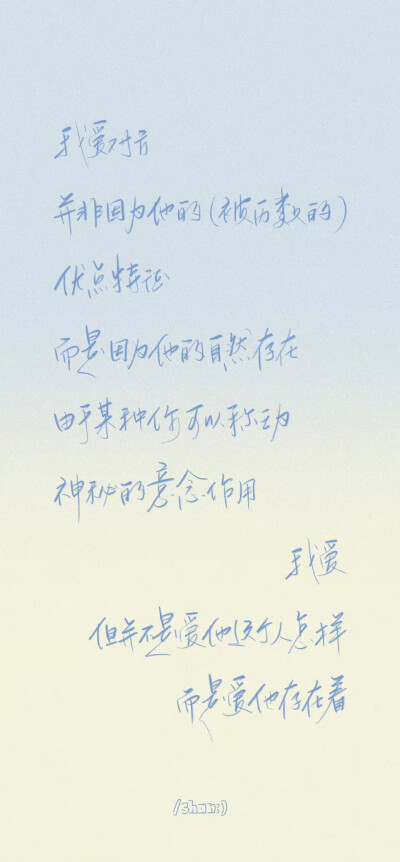 我爱对方
并非因为他的(被历数的)
优点特征
而是因为他的自然存在
由于某种你可以称为
神秘的意念作用
我爱
但并不是爱他这个人怎样
而是爱他存在着
/shan:)